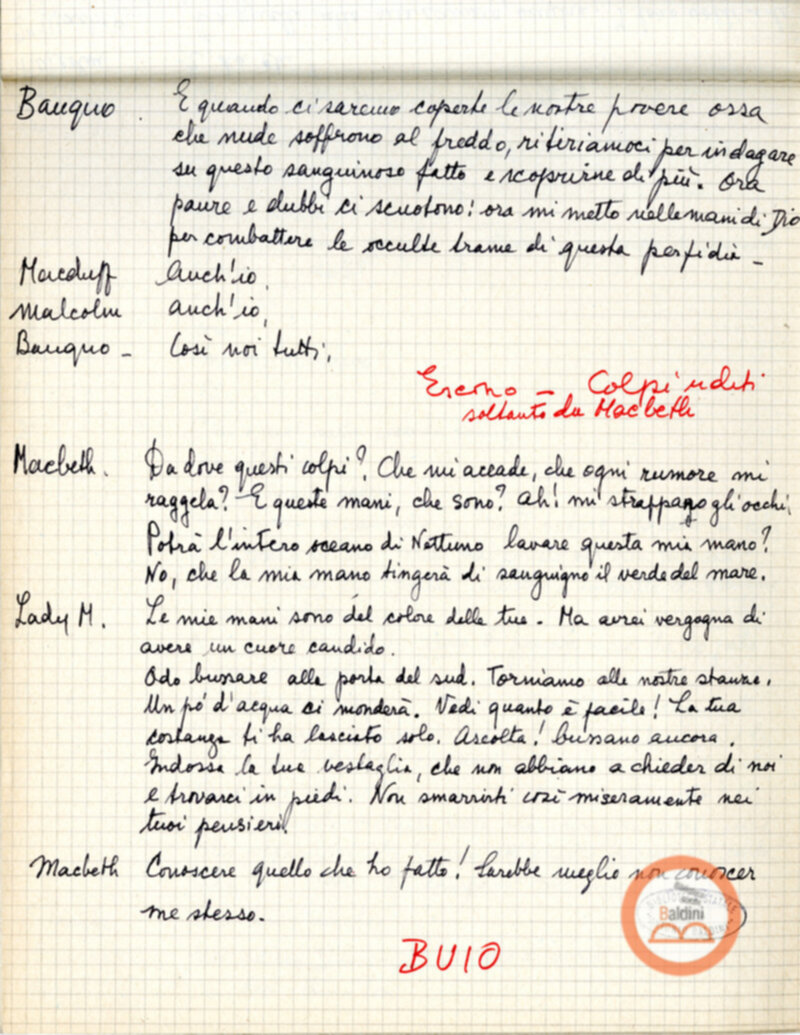 Banquo. E quando ci saremo coperte le nostre povere ossa
che nude soffrono al freddo, ritiriamoci per indagare
su questo sanguinoso fatto e scoprirne di più. Ora
paure e dubbi ci scuotono: ora mi metto nelle mani di Dio
per combattere le occulte trame di questa perfidia –
Macduff Anch'io.
Malcolm Anch'io.
Banquo – Così noi tutti.
Escono – Colpi uditi
soltanto da Macbeth
Macbeth. Da dove questi colpi? Che mi accade, che ogni rumore mi
raggela? E queste mani, che sono? Ah! mi strappano gli occhi.
Potrà l'intero oceano di Nettuno lavare questa mia mano?
No, che la mia mano tingerà di sanguigno il verde del mare.
Lady M. Le mie mani sono del colore delle tue. Ma avrei vergogna di
avere un cuore candido.
Odo bussare alla porta del sud. Torniamo alle nostre stanze.
Un pó d'acqua ci monderà. Vedi quanto è facile! La tua
costanza ti ha lasciato solo. Ascolta! bussano ancora.
Indossa la tua vestaglia, che non abbiano a chieder di noi
e trovarci in piedi. Non smarrirti così miseramente nei
tuoi pensieri.
Macbeth Conoscere quello che ho fatto! Sarebbe meglio non conoscer
me stesso.
Baldini
BUIO